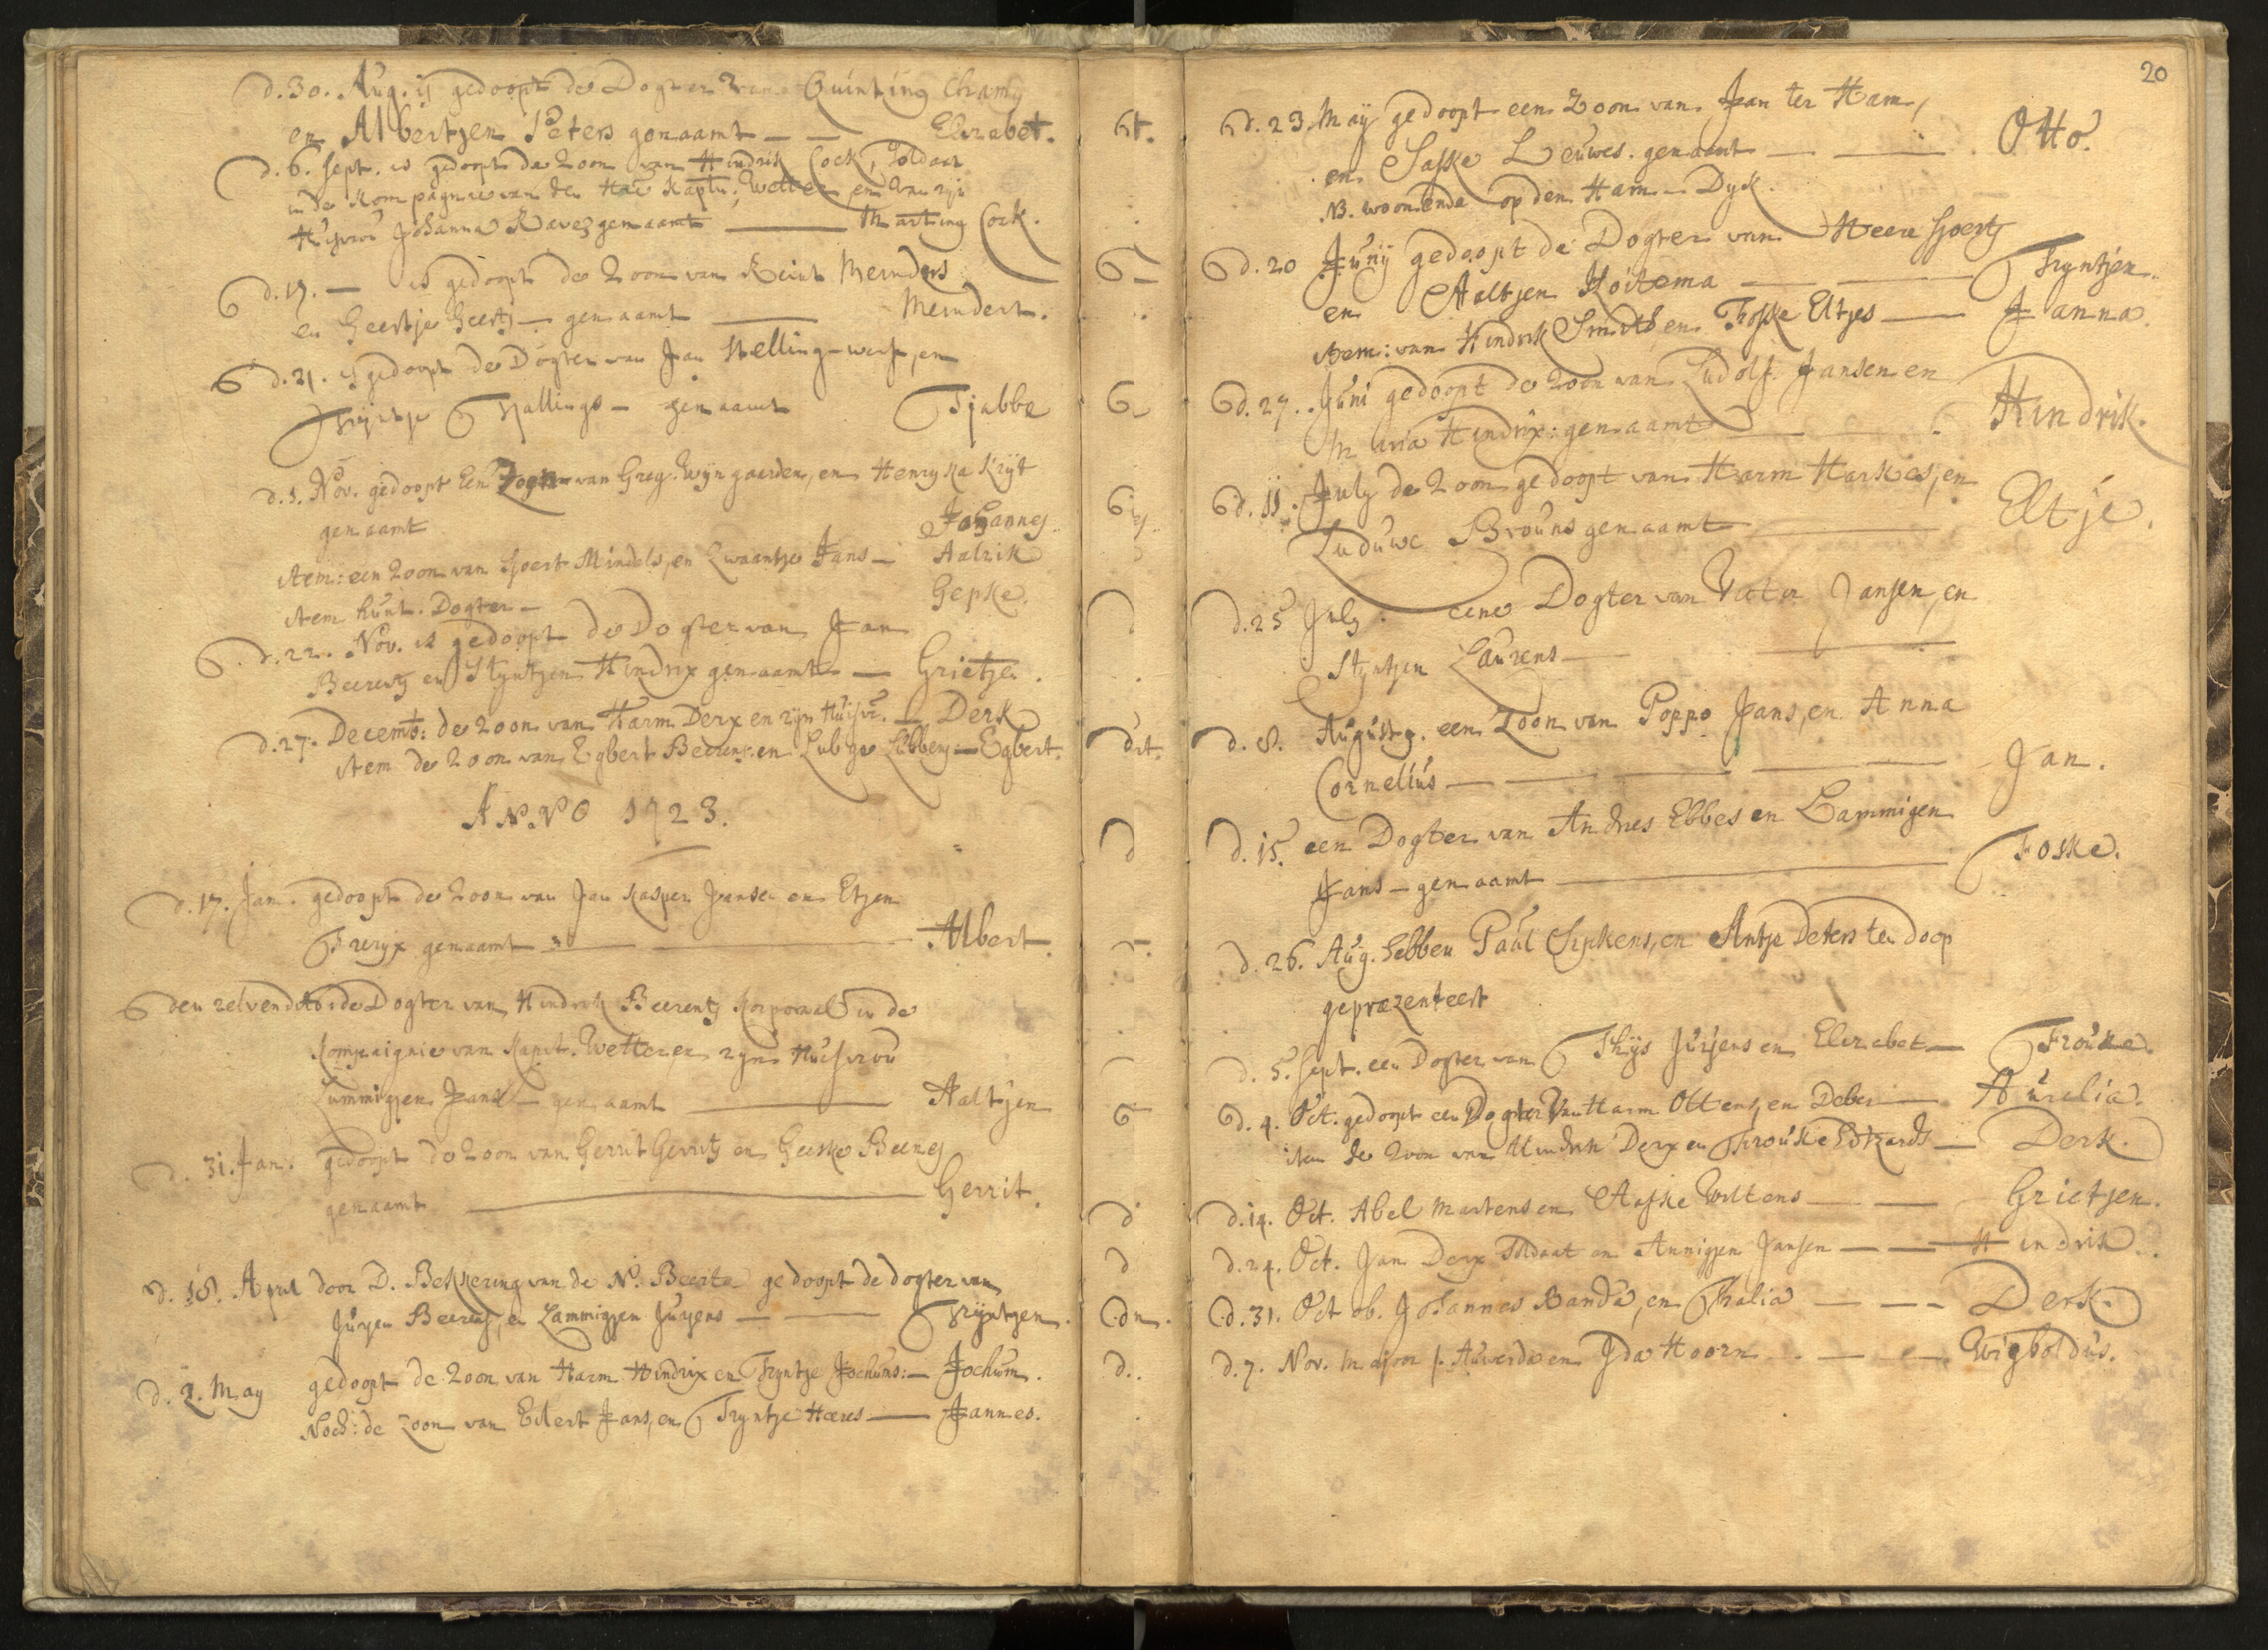 d. 30. Aug. is gedoopt de Dogter van Quinting Chamy
en Albertjen Peters genaamt — — Elizabet.
d. 6. Sept. is gedoopt de Zoon van Hindrik Cock, Soldaat
in de Kompagnie van den Hr. Kaptn. Wetter en van zijn
Huisvrou Johanna Raves genaamt — Marting Cock.
d. 17. — is gedoopt de Zoon van Reint Meinders
en Geertje Geerts — genaamt — Meindert.
d. 21. is gedoopt de Dogter van Jan Stelling-werf, en
Trijntje Tjallings — genaamt Tjabbe
d. 1. Nov. gedoopt Een van Greg. Wijngaarden, en Henryka Krijt
genaamt Johannes.
item: een Zoon van Sjoert Mindels, en Zwaantje Jans — Aalrik
item hunt. Dogter — Gepke.
d. 22. Nov. is gedoopt de Dogter van Jan
Beerents en Styntjen Hindrix genaamt — Grietjen.
d. 27. Decemb: de Zoon van Harm Derx en zijn Huisvr. — Derk
item de Zoon van Egbert Beerents en Lubge Lubbers — Egbert.
ANNO 1723.
d. 17. Jan. gedoopt de Zoon van Jan Kasper Jansen en Etjen
Frerijx genaamt — Albert.
den zelven dito de Dogter van Hindrik Beerents Korporaal in de
Kompaignie van Kapit. Wetter en zijn Huisvrou
Lummigjen Jans — genaamt — Aaltjen
d. 31. Jan. gedoopt de Zoon van Gerrit Gerrits en Geeske Beerens
genaamt — Gerrit.
d. 18. April door D. Bekkering van de N. Beerta gedoopt de dogter van
Jurjen Beerents, en Lammigjen Jurjens — Trijntjen.
d. 2. May gedoopt de Zoon van Harm Hindrix en Tryntje Jochums: — Jochum.
Noch: de Zoon van Eilert Jans, en Tryntje Haeres — Jannes.
20
d. 23. May gedoopt een Zoon van Jan ter Ham,
en Saske Leuwes. genaamt — — Otto.
NB. woonende op den Ham-Dyk.
d. 20 Junij gedoopt de Dogter van Heere Sjoerts
en Aaltjen Koitema — — Tryntjen.
item: van Hindrik Smidt en Foske Eltjes — Janna.
d. 27. Juni gedoopt de Zoon van Ludolf Jansen en
Maria Hindrix: genaamt — Hindrik.
d. 11. July de Zoon gedoopt van Harm Harkes, en
Luduwe Brouns genaamt — Eltje.
d. 25 July. eene Dogter van Jansen, en
Styntjen Laurens — —
d. 8. Augusty. een Zoon van Poppo Jans, en Anna
Cornelius — — — — Jan.
d. 15. een Dogter van Andries Ebbes en Lammigen
Jans — genaamt — Foske.
d. 26. Aug. hebben Paul Sipkens, en Antje Peters ten doop
geprezenteert
d. 5. Sept. een Dogter van Thijs Jurjens en Elizabet — Frouke.
d. 4. Oct. gedoopt een Dogter van Harm Ottens, en Deber — Aurelia.
item de Zoon van Hindrik Derx en Frouke Edzards — Derk.
d. 14. Oct. Abel Martens en Aafke Wiltens — — Grietjen.
d. 24. Oct. Jan Derx Soldaat en Annigjen Jansen — — Hindrik.
d. 31. Oct ob. Johannes Banda, en Thalia — — Derk.
d. 7. Nov. Majoor Auwerda en Ida Hoorn — — Wigboldus.